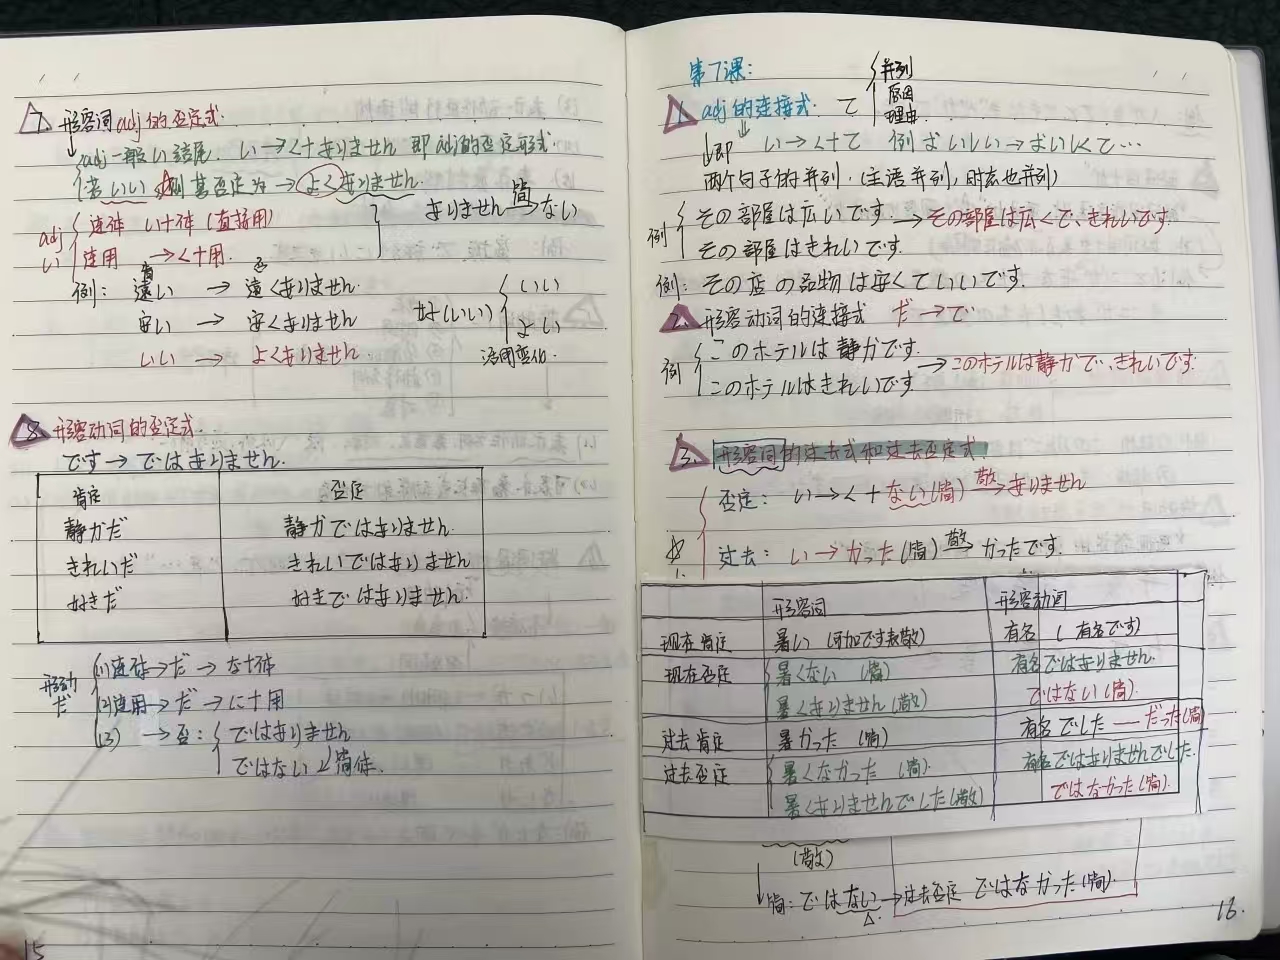 7. 形容词adj的否定式.
adj一般い结尾. い→く+ありません 即adj的否定形式.
若いい 则其否定为→よくありません.
ありません 简→ない
adj い
连体 い+体 (直接用)
连用 →く+用.
例: 肯 遠い → 否 遠くありません.
安い → 安くありません
いい → よくありません.
好(いい) いい
よい
活用变化.
8. 形容动词的否定式.
です→ではありません.
肯定 否定
静かだ 静かではありません.
きれいだ きれいではありません
好きだ 好きではありません.
形容动 だ
(1)连体→だ→な+体
(2)连用→だ→に+用
(3) →否: ではありません
ではない 简体.
15
第7课:
1. adj的连接式. て 并列 原因 理由
即 い→く+て 例 よいい→よいくて…
两个句子的并列. (主语并列, 时态也并列)
例 その部屋は広いです. → その部屋は広くで、きれいです.
その部屋はきれいです.
例: その店の品物は安くていいです.
2. 形容动词的连接式 だ→で
例 このホテルは静かです. → このホテルは静かで、きれいです.
このホテルはきれいです
3. 形容词的过去式和过去否定式.
否定: い→く+ない(简) 敬→ありません
过去: い→かった(简) 敬→かったです.
形容词 形容动词
现在肯定 暑い (可加です表敬) 有名 (有名です)
现在否定 暑くない (简) 有名ではありません.
暑くありません(敬) ではない(简).
过去肯定 暑かった (简) 有名でした — だった(简)
过去否定 暑くなかった (简). 有名ではありませんでした.
暑くありませんでした(敬) ではなかった(简).
(敬)
简: ではない→过去否定 ではなかった(简)
16.